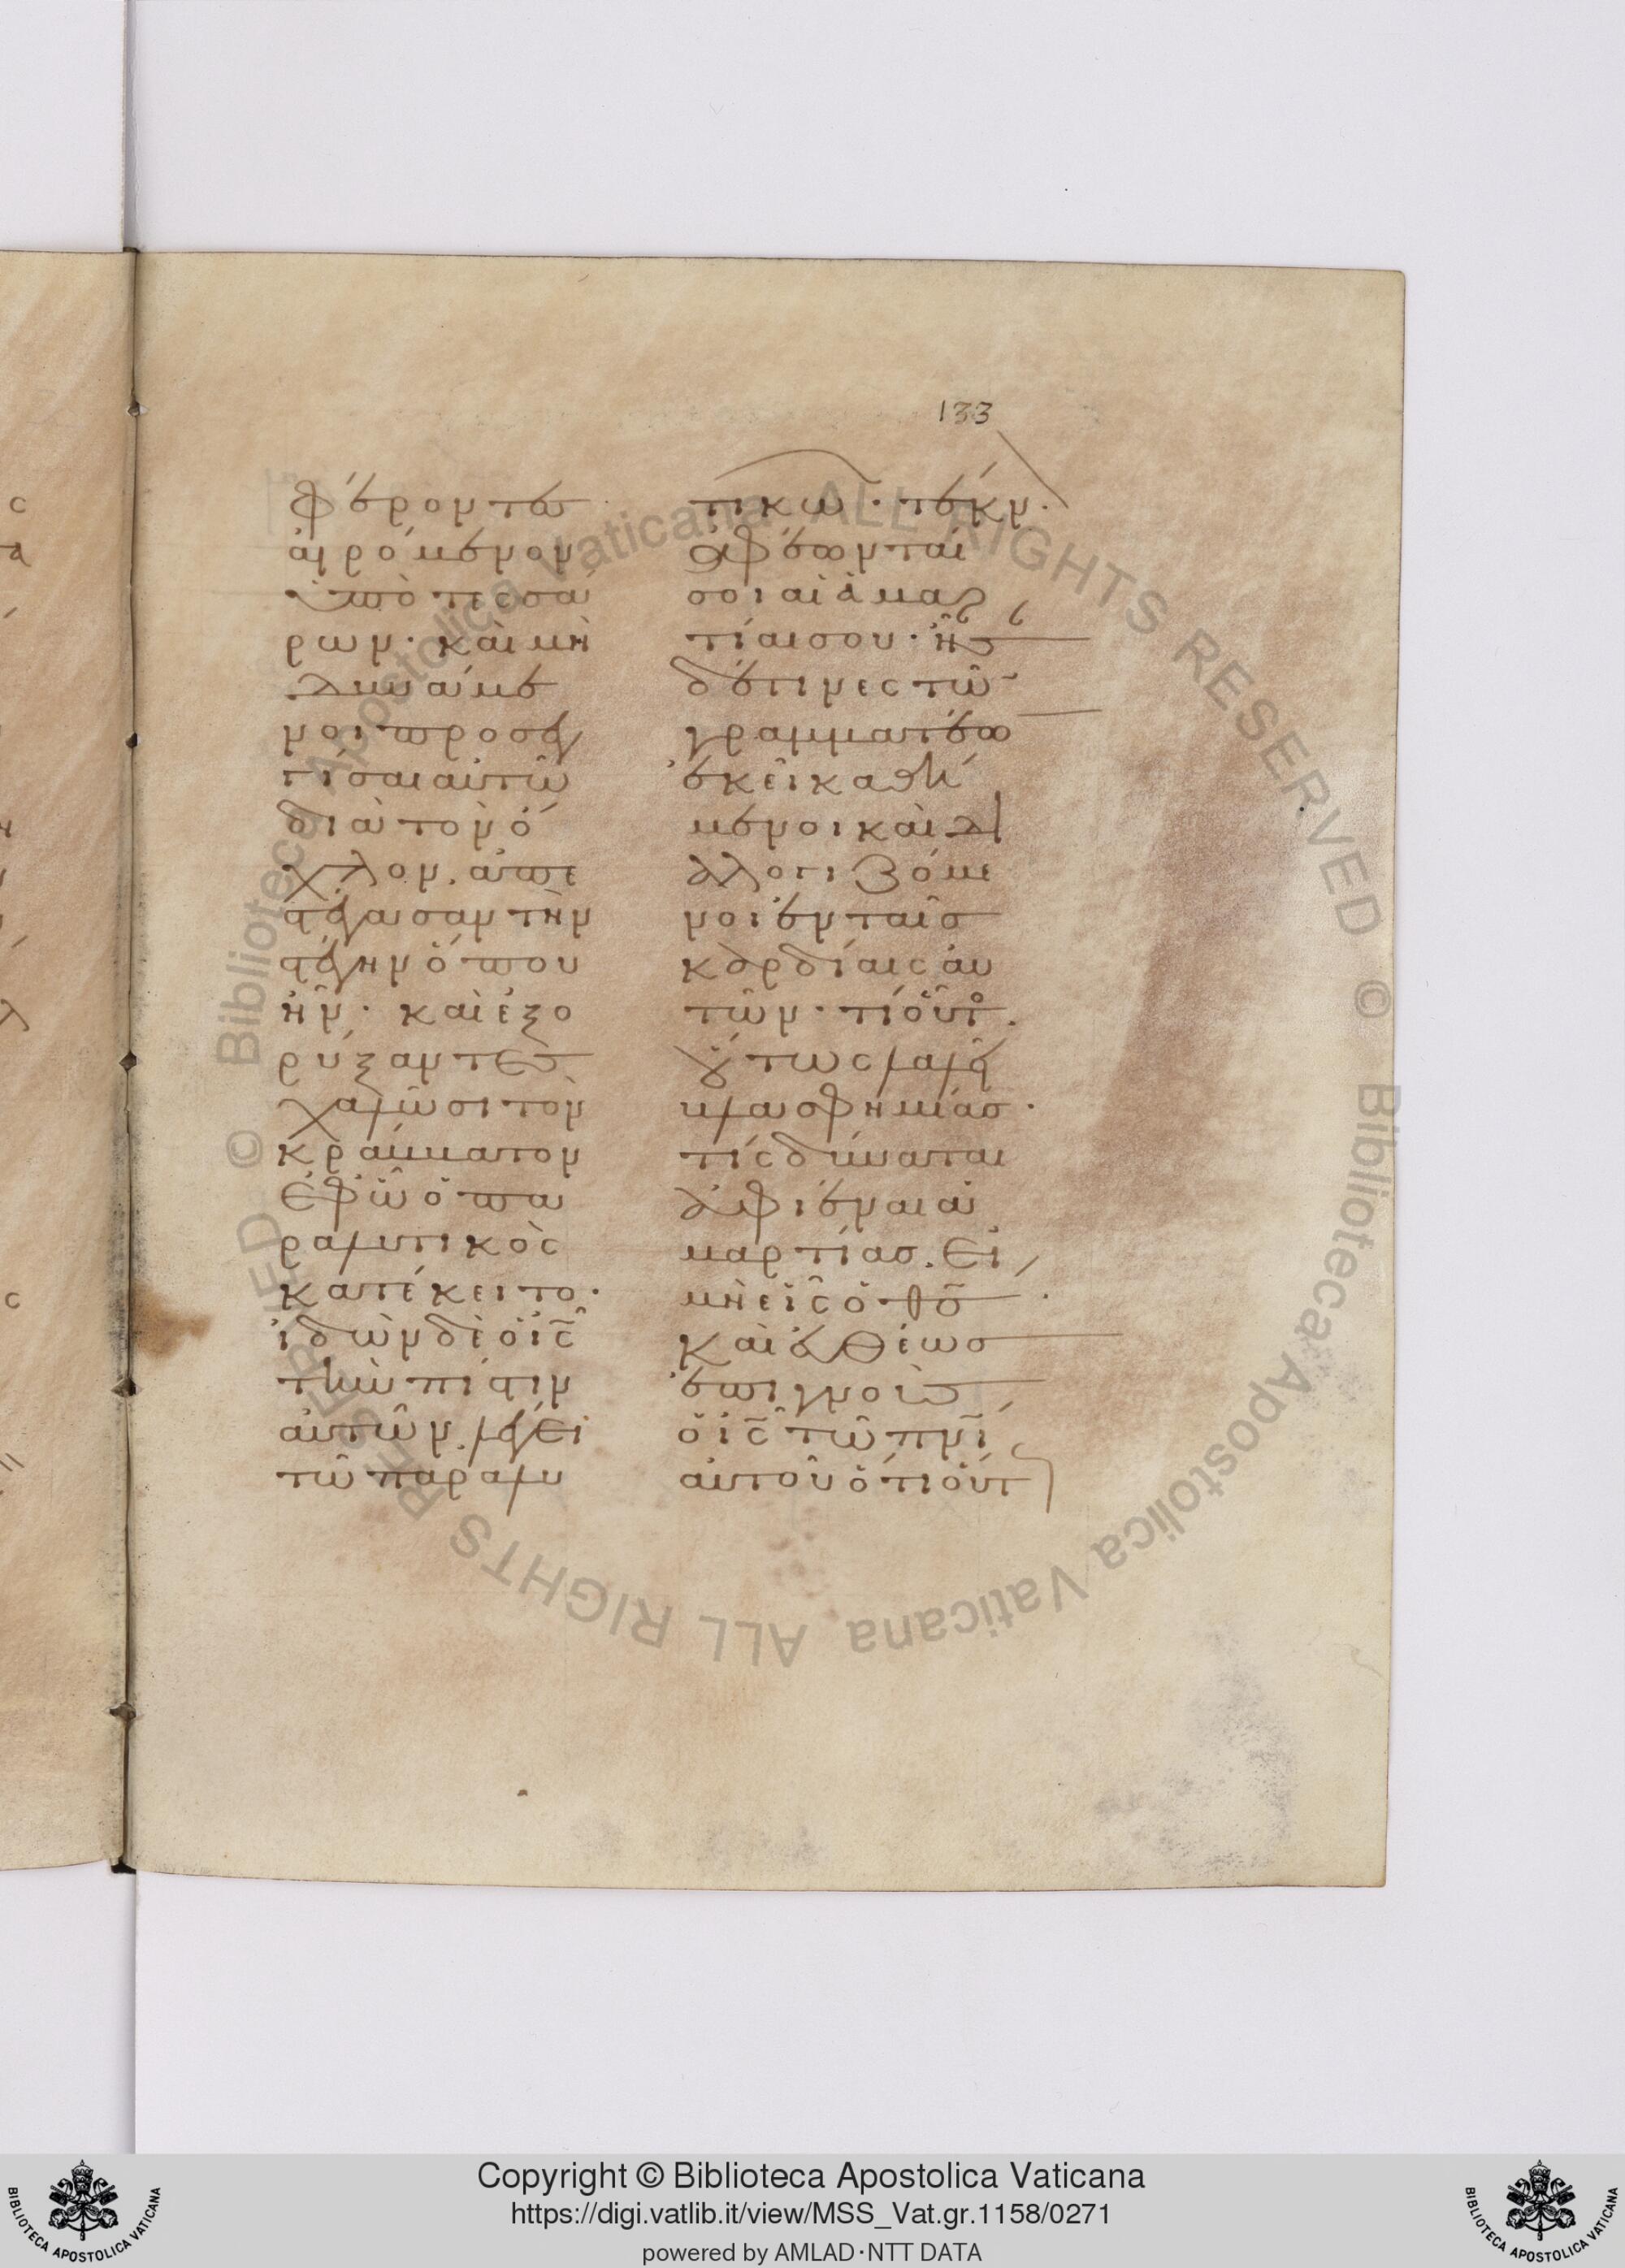 133
φέροντες
αἰρόμενον
ὑπὸ τεσσά
ρων· καὶ μὴ
δυνάμε
νοι προσεγ
γίσαι αὐτῶ
διὰ τὸν ὄ
χλον. ἀπε
στέγασαν τὴν
στέγην ὅπου
ἦν· καὶ ἐξο
ρύξαντες
χαλῶσι τὸν
κράββατον
ἐφ' ᾧ ὁ πα
ραλυτικὸς
κατέκειτο·
ἰδὼν δὲ ὁ ις
τὴν πίστιν
αὐτῶν. λέγει
τῶ παραλυ
τικῶ· τέκν.
ἀφέωνταί
σοι αἱ ἁμαρ
τίαι σου· ἦς
δέ τινες τῶ
γραμματέω
ἐκεῖ καθή
μενοι καὶ δι
αλογιζόμε
νοι ἐν ταῖς
καρδίαις αὐ
τῶν· τί οὗτο.
οὕτως λαλεῖ
βλασφημίας·
τίς δύναται
ἀφιέναι ἁ
μαρτίας. εἰ
μὴ εἷς ὁ θς·
καὶ εὐθέως
ἐπιγνοὺς
ὁ ις τῶ πνι
αὐτοῦ ὅτι οὕτ
Copyright © Biblioteca Apostolica Vaticana
https://digi.vatlib.it/view/MSS_Vat.gr.1158/0271
powered by AMLAD·NTT DATA
BIBLIOTECA APOSTOLICA VATICANA
BIBLIOTECA APOSTOLICA VATICANA
Biblioteca Apostolica Vaticana ALL RIGHTS RESERVED ©
Biblioteca Apostolica Vaticana ALL RIGHTS RESERVED ©